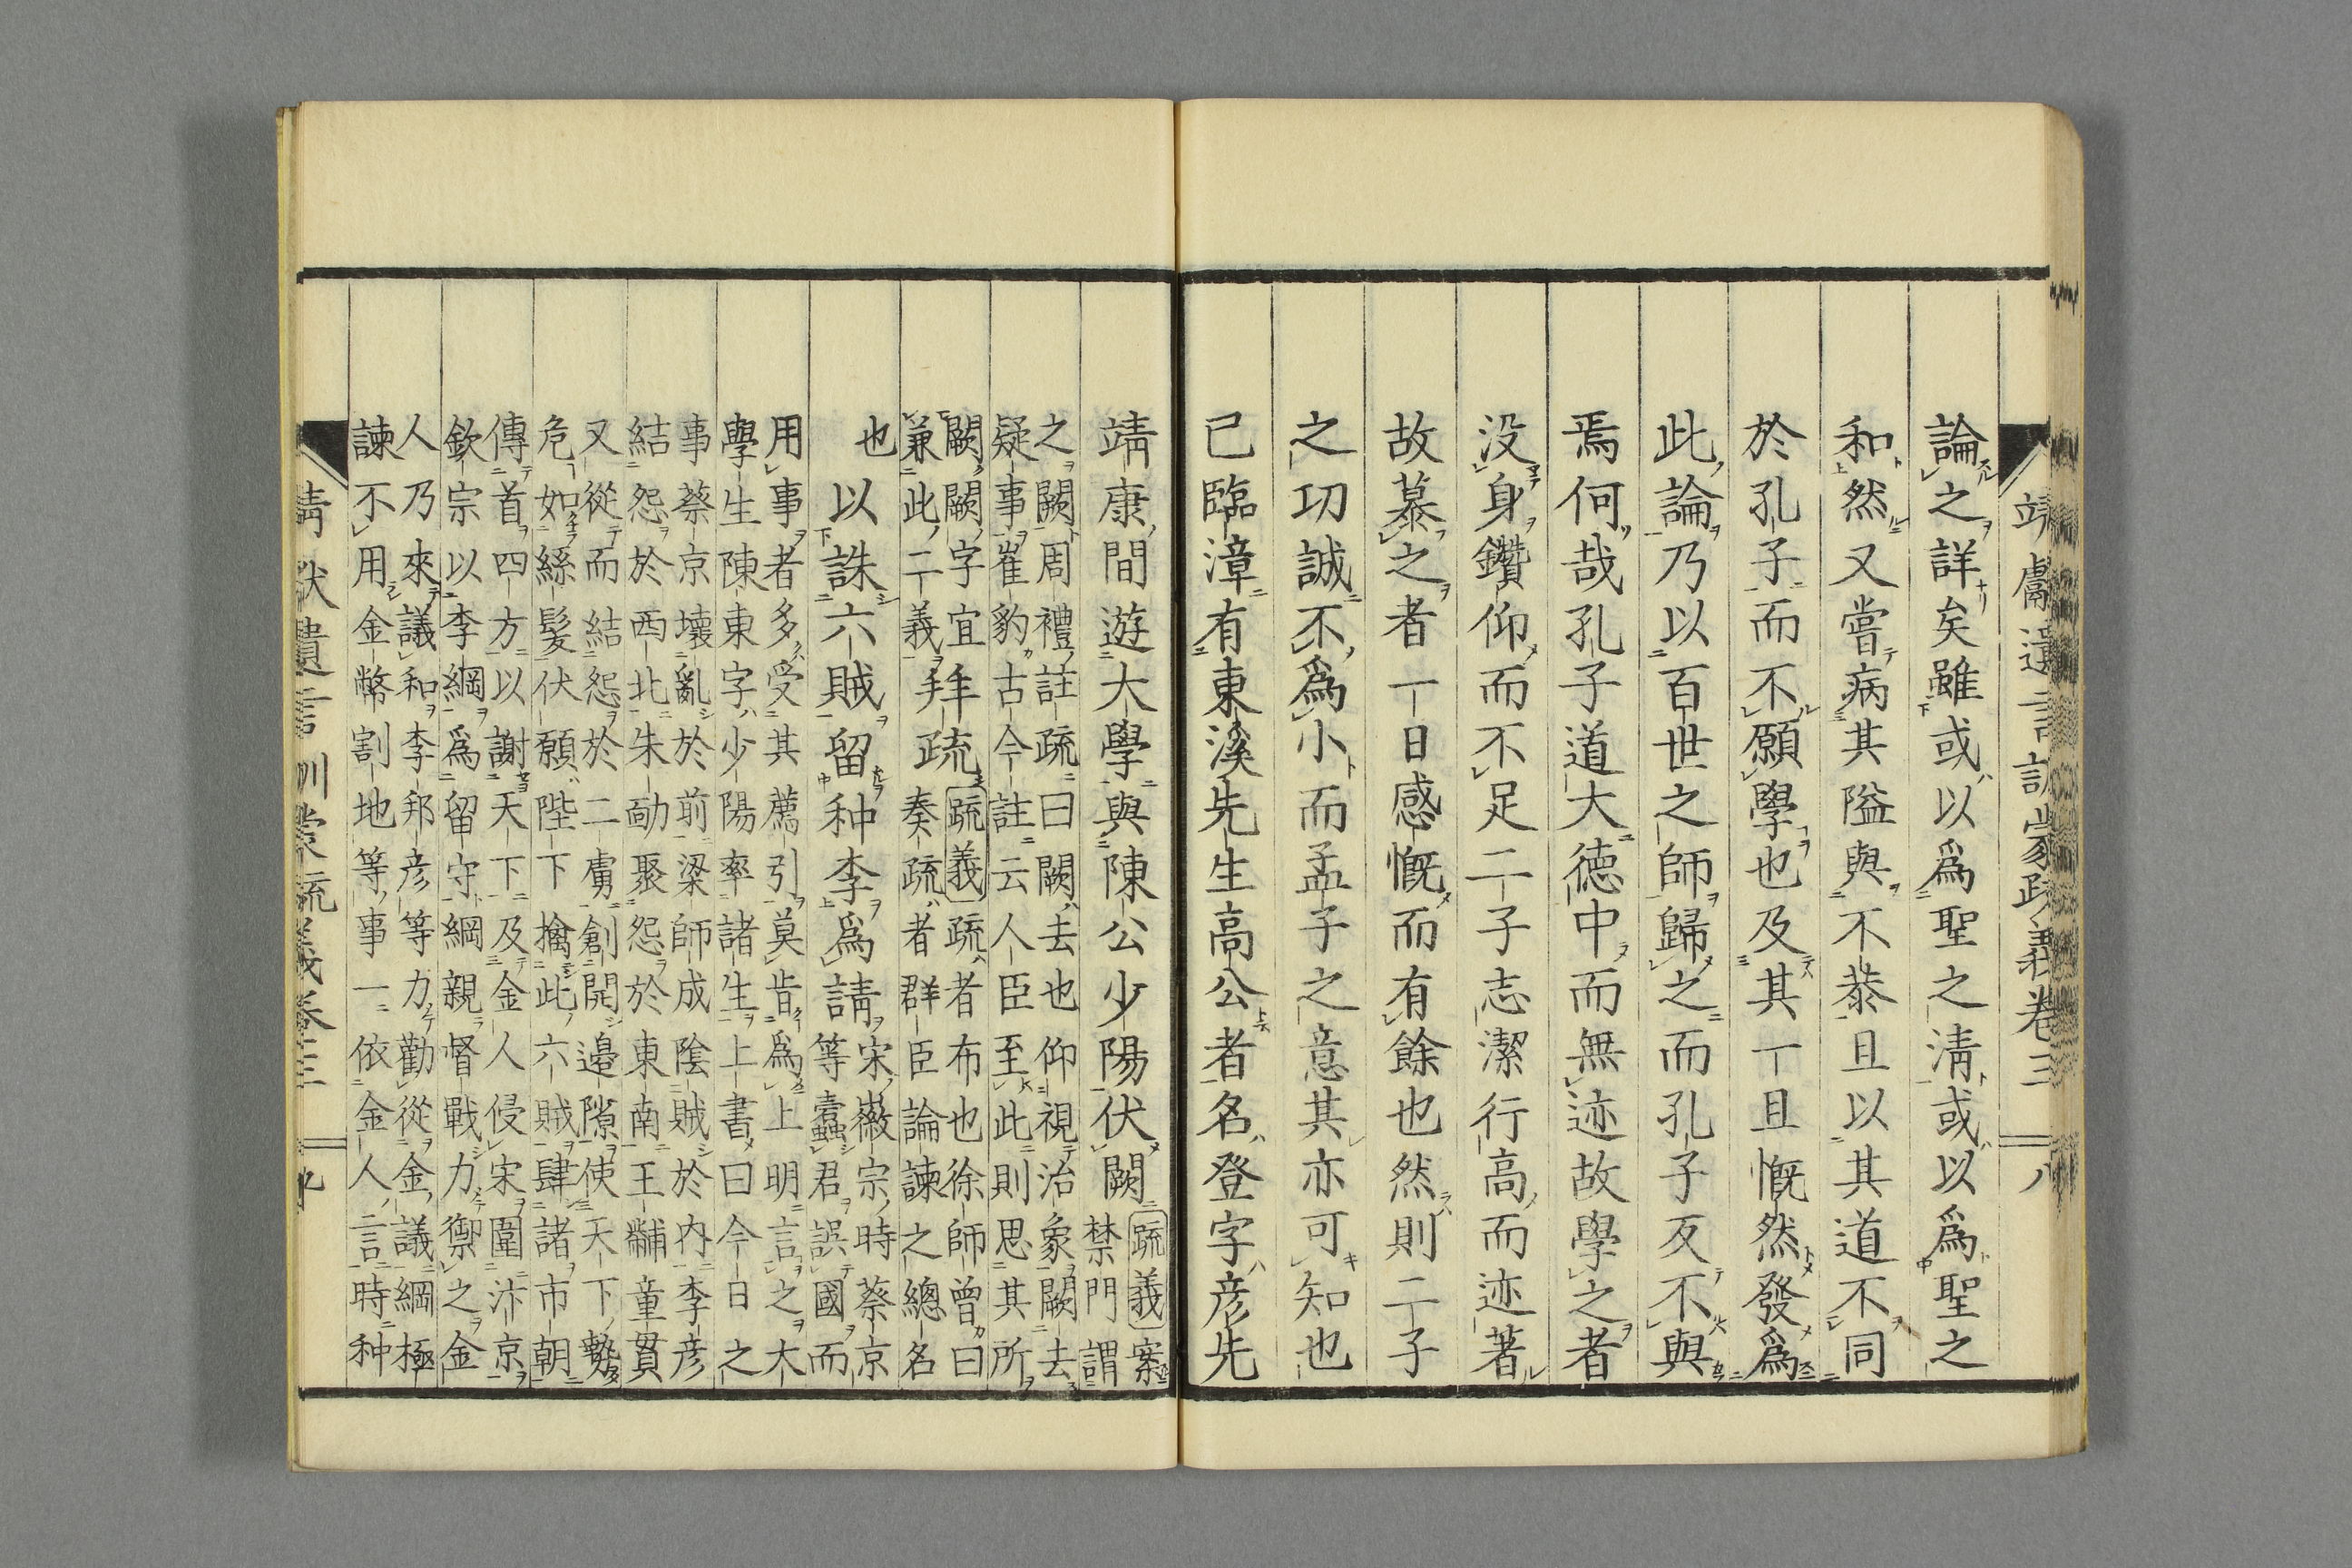 靖獻遺言訓蒙疏義卷三 八
論之詳矣雖或以爲聖之淸或以爲聖之
和然又嘗病其隘與不恭且以其道不同
於孔子而不願學也及其一旦慨然發爲
此論乃以百世之師歸之而孔子反不與
焉何哉孔子道大德中而無迹故學之者
没身鑽仰而不足二子志潔行高而迹著
故慕之者一日感慨而有餘也然則二子
之功誠不爲小而孟子之意其亦可知也
已臨漳有東溪先生高公者名登字彥先
靖康間遊大學與陳公少陽伏闕
疏義案
禁門謂
之闕周禮註疏曰闕去也仰視治象闕去
疑事崔豹古今註云人臣至此則思其所
闕闕字宜
兼此二義
拜疏
疏義疏者布也徐師曾曰
奏疏者群臣論諫之總名
也
以誅六賊留种李爲請
宋徽宗時蔡京
等蠹君誤國而
用事者多受其薦引莫肯爲上明言之太
學生陳東字少陽率諸生上書曰今日之
事蔡京壞亂於前梁師成陰賊於内李彥
結怨於西北朱勔聚怨於東南王黼童貫
又從而結怨於二虜創開邊隙使天下勢
危如絲髮伏願陛下擒此六賊肆諸市朝
傳首四方以謝天下及金人侵宋圍汴京
欽宗以李綱爲留守綱親督戰力禦之金
人乃來議和李邦彥等力勸從金議綱極
諫不用金幣割地等事一依金人言時种
靖獻遺言訓蒙疏義卷三 九